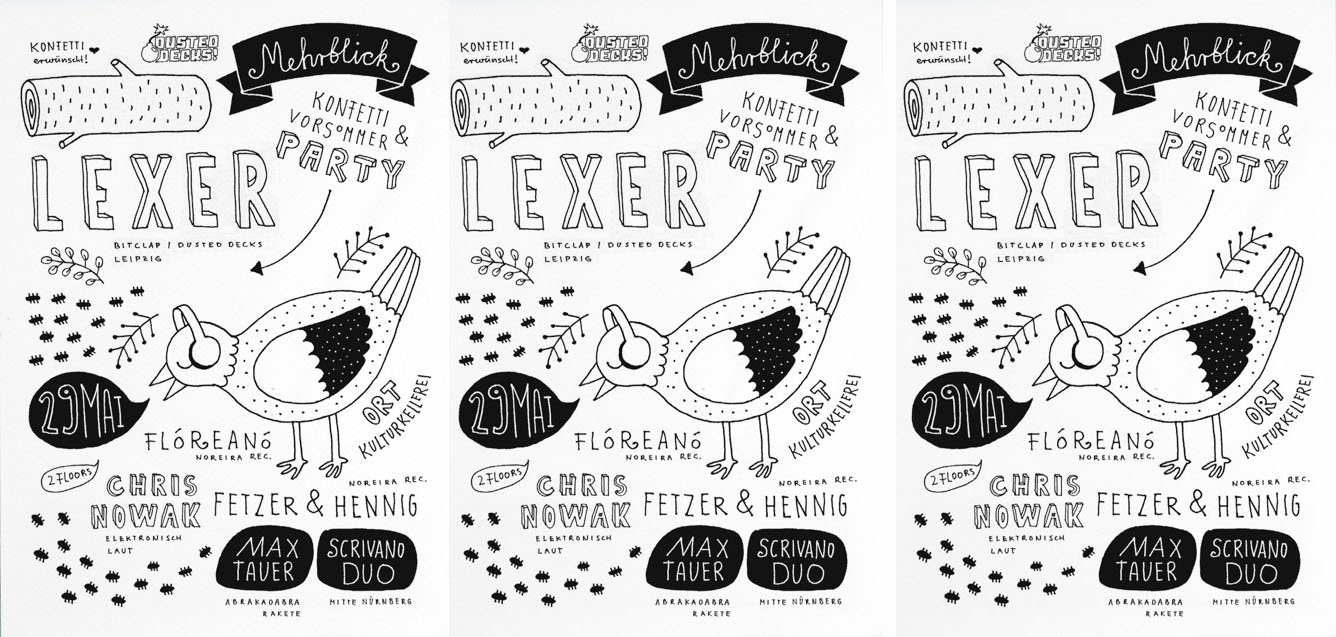 KONFETTI
erwünscht!
DUSTED
DECKS!
Mehrblick
KONFETTI
VORSOMMER &
PARTY
LEXER
BITCLAP | DUSTED DECKS
LEIPZIG
29 MAI
ORT
KULTURKELLEREI
FLÓREANÓ
NOREIRA REC.
2 FLOORS
CHRIS
NOWAK
ELEKTRONISCH
LAUT
NOREIRA REC.
FETZER & HENNIG
MAX
TAUER
ABRAKADABRA
RAKETE
SCRIVANO
DUO
MITTE NÜRNBERG
KONFETTI
erwünscht!
DUSTED
DECKS!
Mehrblick
KONFETTI
VORSOMMER &
PARTY
LEXER
BITCLAP | DUSTED DECKS
LEIPZIG
29 MAI
ORT
KULTURKELLEREI
FLÓREANÓ
NOREIRA REC.
2 FLOORS
CHRIS
NOWAK
ELEKTRONISCH
LAUT
NOREIRA REC.
FETZER & HENNIG
MAX
TAUER
ABRAKADABRA
RAKETE
SCRIVANO
DUO
MITTE NÜRNBERG
KONFETTI
erwünscht!
DUSTED
DECKS!
Mehrblick
KONFETTI
VORSOMMER &
PARTY
LEXER
BITCLAP | DUSTED DECKS
LEIPZIG
29 MAI
ORT
KULTURKELLEREI
FLÓREANÓ
NOREIRA REC.
2 FLOORS
CHRIS
NOWAK
ELEKTRONISCH
LAUT
NOREIRA REC.
FETZER & HENNIG
MAX
TAUER
ABRAKADABRA
RAKETE
SCRIVANO
DUO
MITTE NÜRNBERG